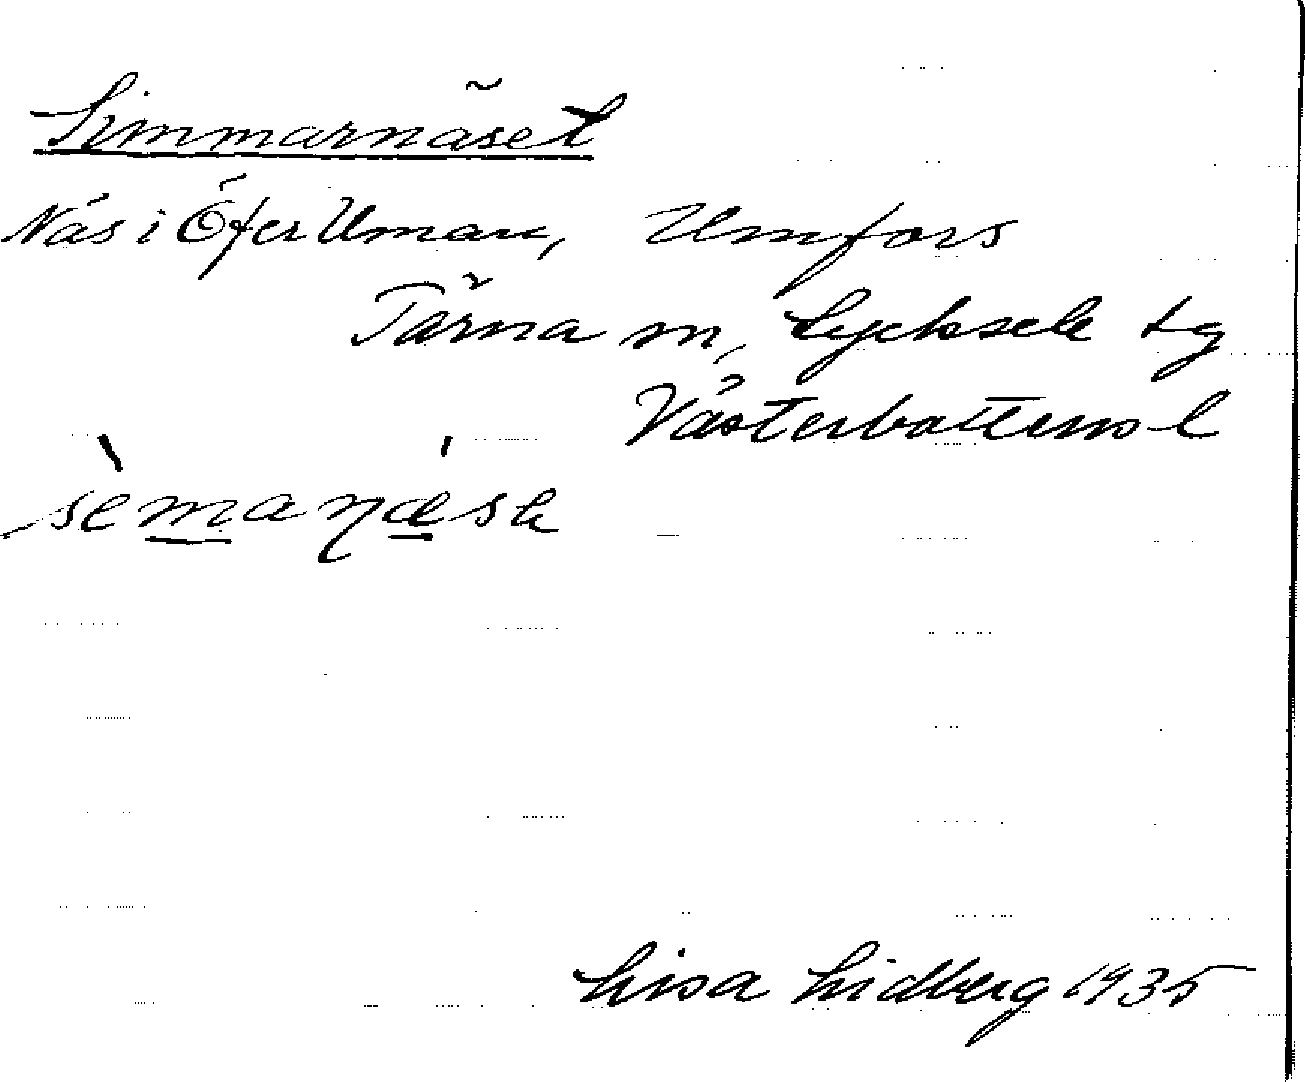 Simmarnäset
Näs i ÖferUman, Umfors
Tärna sn, Lycksele tg
Västerbottens l
Lisa Lidberg 1935